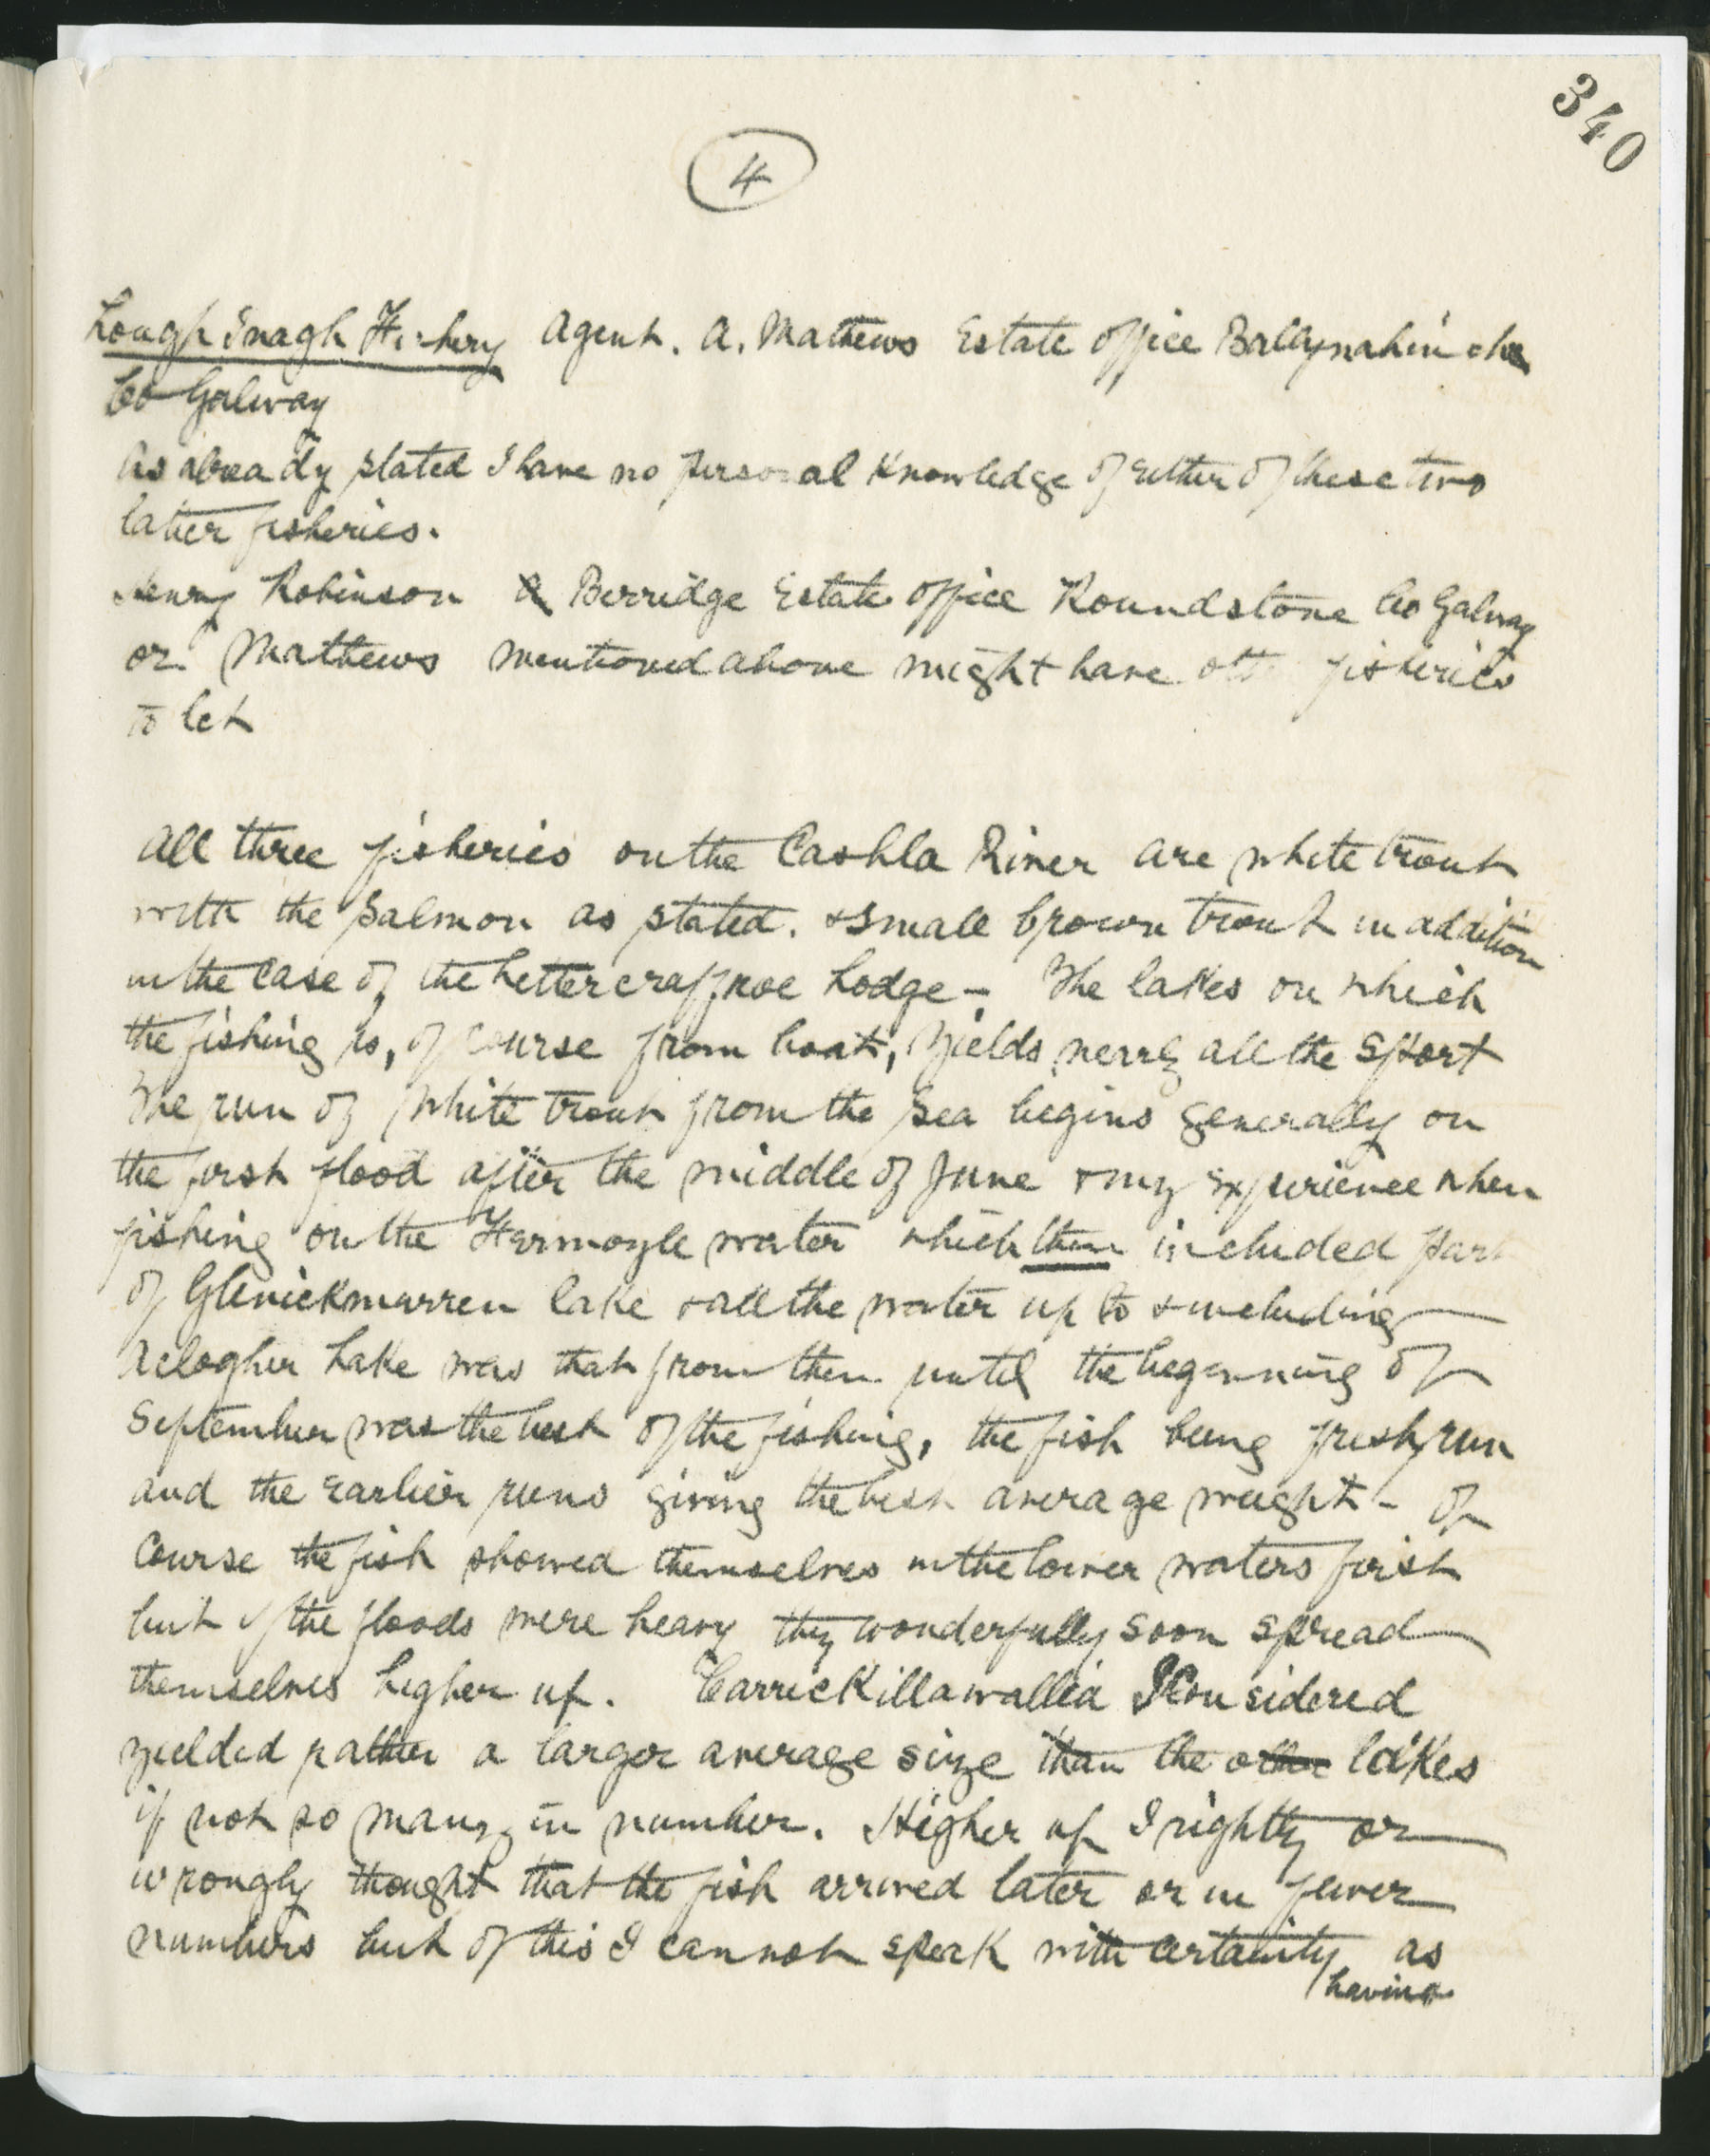 340
4
Lough Inagh Fishery Agent. A. Mathews Estate Office Ballynahinche
Co Galway
As already stated I have no personal knowledge of either of these two
latter fisheries.
Henry Robinson Berridge Estate Office Roundstone Co Galway
or Mathews mentioned above might have fisheries
to let
All three fisheries on the Cashla River are white trout
with the Salmon as stated. & small brown trout in addition
in the case of the Lettercraffroe Lodge - The lakes on which
the fishing is, of course from boats, yields nearly all the sport
The run of white trout from the sea begins generally on
the first flood after the middle of June & my experience when
fishing on the Fermoyle water which then included part
of Glenickmurren lake & all the water up to & including
Aclogher Lake was that from then until the beginning of
September was the best of the fishing, the fish being fresh run
and the earlier runs giving the best average weight - of
course the fish showed themselves in the lower waters first
but if the floods were heavy they wonderfully soon spread
themselves higher up. Carrickillawallia I considered
yielded rather a larger average size than the other lakes
if not so many in number. Higher up I rightly or
wrongly thought that the fish arrived later or in fewer
numbers but of this I cannot speak with certainty as
having